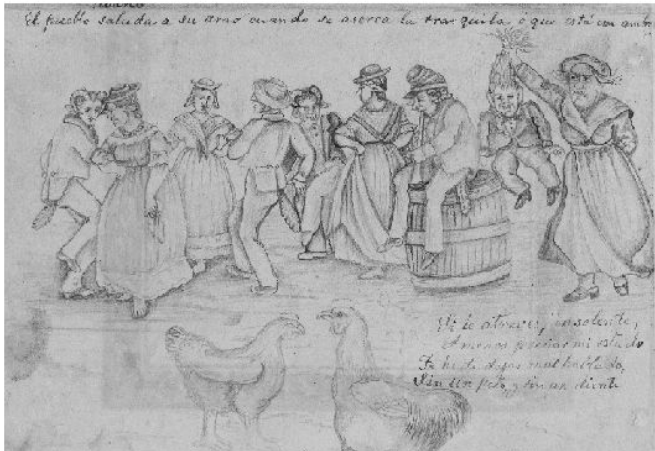 El pueblo saluda a su amo cuando se aserca la tranquila ó que está con
Si te atreves, insolente,
A menos preciar mi estado
Te he de dejar mal hablado,
Sin un pelo y sin un diente